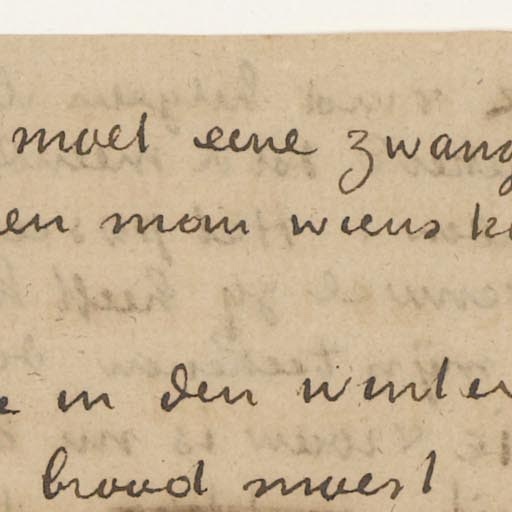 moet eene zwang
en man wiens k
e in den winter
brood moest